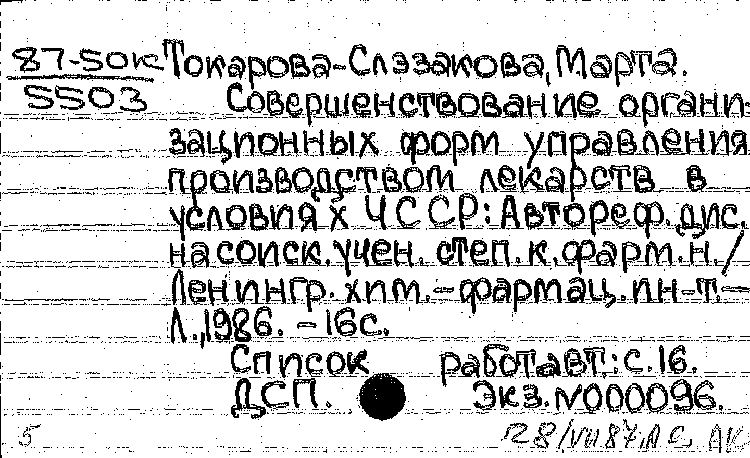 87-50к Токарова-Слэзакова, Марта.
5503 Совершенствование органи-
зационных форм управления
производством лекарств в
условиях ЧССР: Автореф. дис.
на соиск. учен. степ. к. фарм. н. /
Ленингр. хим.-фармац. ин-т.-
Л., 1986. - 16 с.
Список работ авт.: с. 16.
ДСП. Экз. N000096.
5